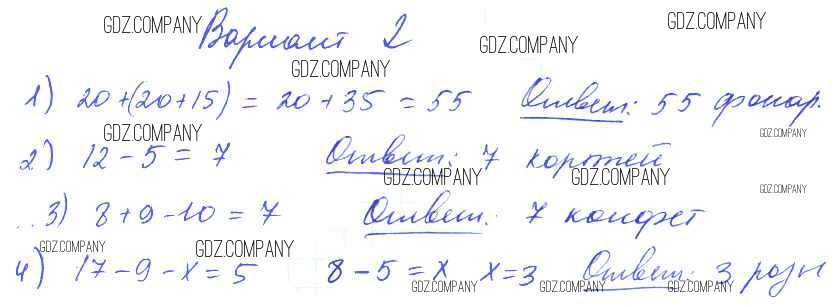 Вариант 2
1) 20+(20+15) = 20+35 = 55 Ответ: 55 фонар.
2) 12-5 = 7 Ответ: 7 коротей
3) 8+9-10 = 7 Ответ: 7 конфет
4) 17-9-x=5 8-5=x x=3 Ответ: 3 розы
GDZ.COMPANY
GDZ.COMPANY
GDZ.COMPANY
GDZ.COMPANY
GDZ.COMPANY
GDZ.COMPANY
GDZ.COMPANY
GDZ.COMPANY
GDZ.COMPANY
GDZ.COMPANY
GDZ.COMPANY
GDZ.COMPANY
GDZ.COMPANY
GDZ.COMPANY